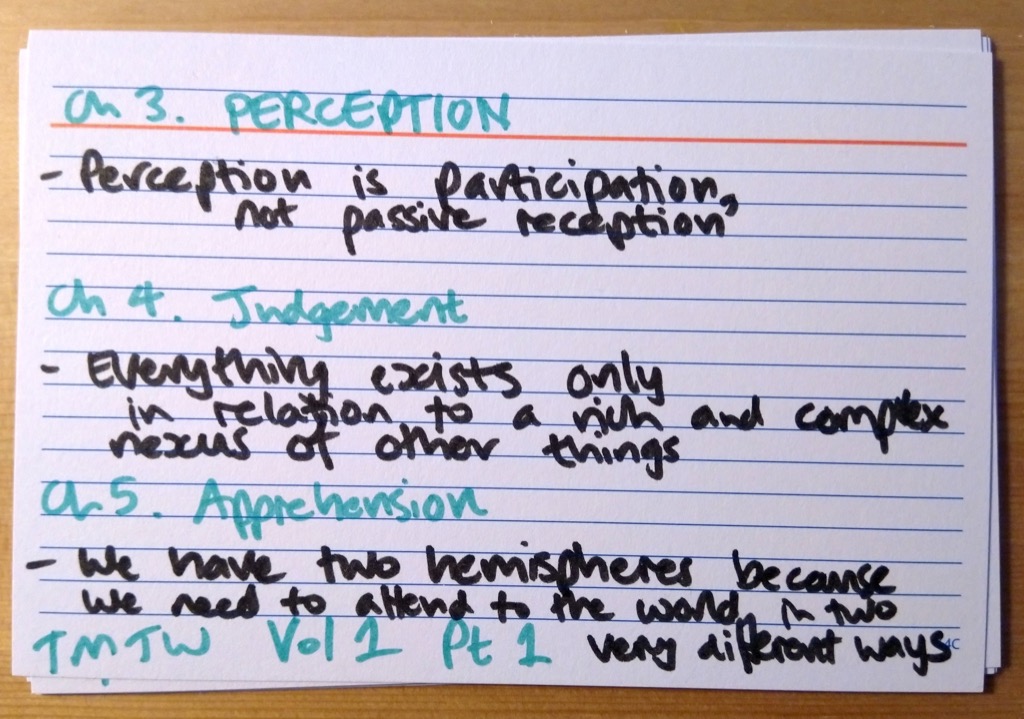 Ch 3. PERCEPTION
- Perception is participation,
not passive reception
Ch 4. Judgement
- Everything exists only
in relation to a rich and complex
nexus of other things
Ch 5. Apprehension
- We have two hemispheres because
we need to attend to the world in two
very different ways
TMTW Vol 1 Pt 1
4C